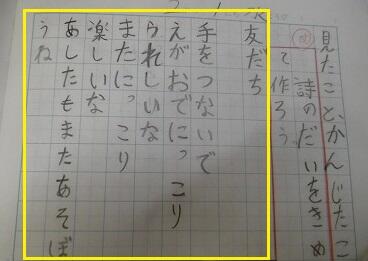 見たこと、かんじたこ
詩のだいをきめ
て作ろう。
友だち
手をつないで
えがおでにっこり
うれしいな
またにっこり
楽しいな
あしたもまたあそぼ
うね